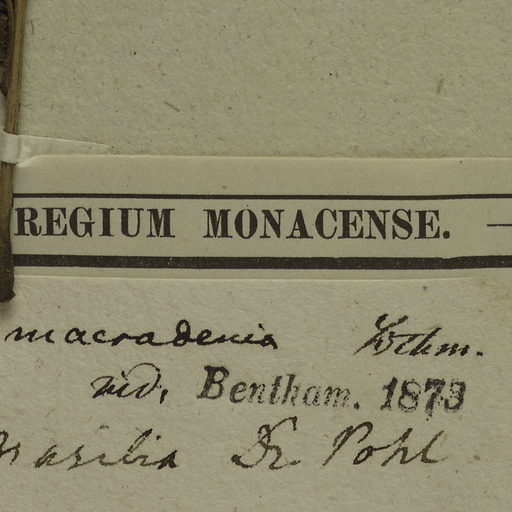 REGIUM MONACENSE. —
macradenia Bthm.
vid. Bentham. 1873
rasilia Dr. Pohl